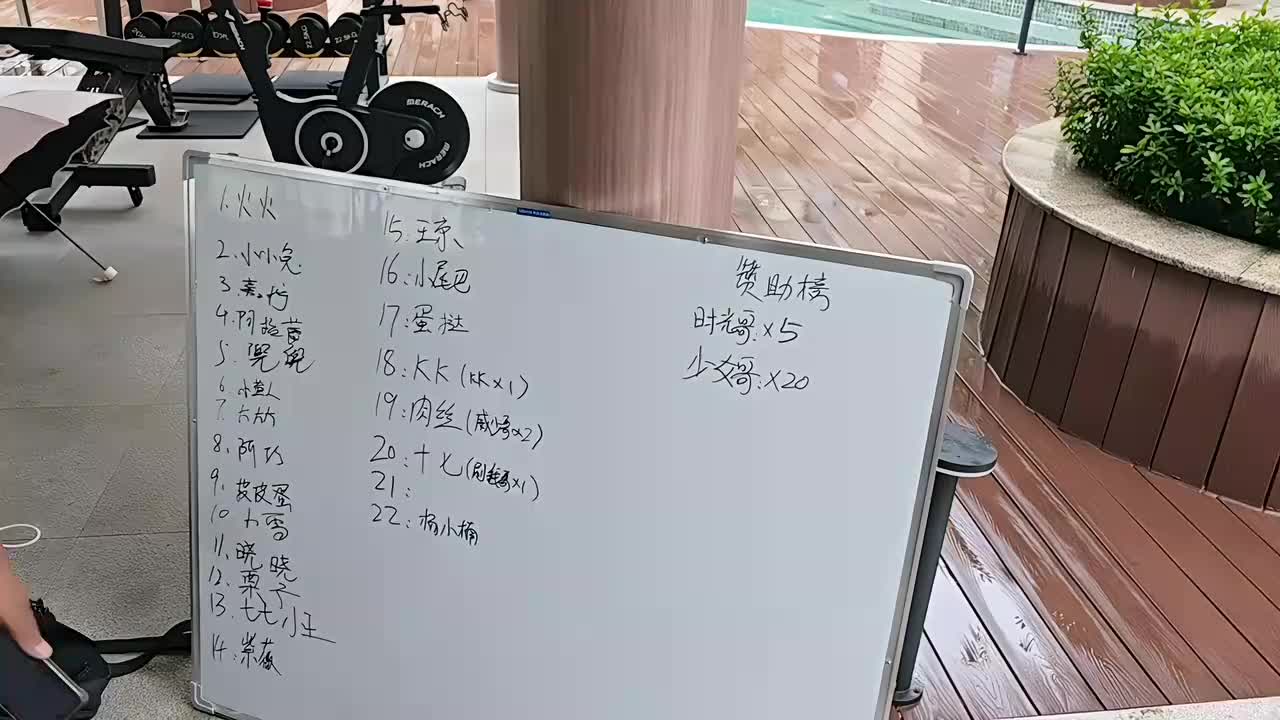 1.火火
2.小小兔
3.
4.阿拉蕾
5.兜兜
6.
7.大竹
8.阿巧
9.皮皮蛋
10.小雪
11.晓晓
12.栗子
13.七七小王
14.紫薇
15.王京
16.小尾巴
17.蛋挞
18.KK(KK×1)
19.肉丝(威少哥×2)
20.十七(哥×1)
21.
22.桶小桶
赞助榜
时光哥:×5
少文哥:×20
25KG
22.5KG
MERACH
MERACH